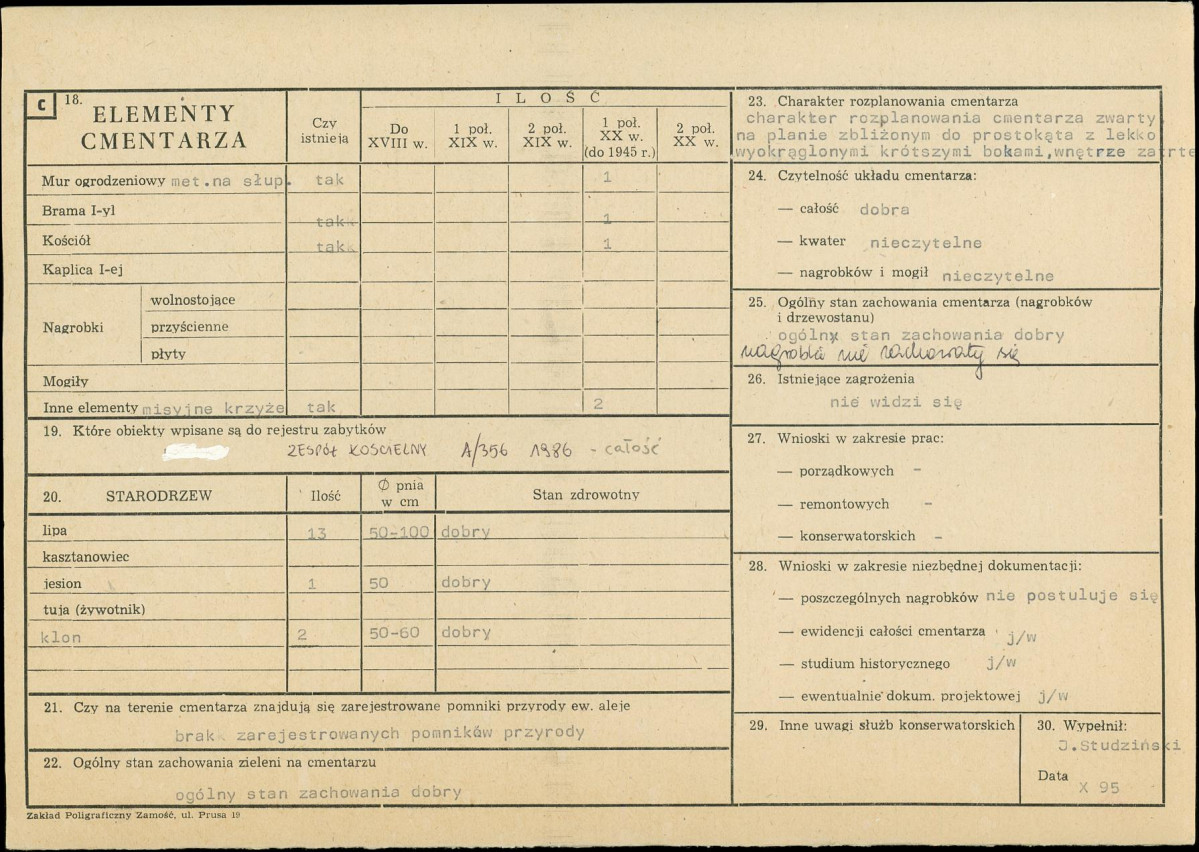 C 18. ELEMENTY CMENTARZA
Czy istnieją
ILOŚĆ
Do XVIII w.
1 poł. XIX w.
2 poł. XIX w.
1 poł. XX w. (do 1945 r.)
2 poł. XX w.
Mur ogrodzeniowy met.na słup. tak 1
Brama I-yl tak 1
Kościół tak 1
Kaplica I-ej
Nagrobki
wolnostojące
przyścienne
płyty
Mogiły
Inne elementy misyjne krzyże tak 2
19. Które obiekty wpisane są do rejestru zabytków
ZESPÓŁ KOŚCIELNY A/356 1986 - całość
20. STARODRZEW
Ilość
Ø pnia w cm
Stan zdrowotny
lipa 13 50-100 dobry
kasztanowiec
jesion 1 50 dobry
tuja (żywotnik)
klon 2 50-60 dobry
21. Czy na terenie cmentarza znajdują się zarejestrowane pomniki przyrody ew. aleje
brak zarejestrowanych pomników przyrody
22. Ogólny stan zachowania zieleni na cmentarzu
ogólny stan zachowania dobry
Zakład Poligraficzny Zamość, ul. Prusa 19
23. Charakter rozplanowania cmentarza
charakter rozplanowania cmentarza zwarty,
na planie zbliżonym do prostokąta z lekko
wyokrąglonymi krótszymi bokami,wnętrze zatrte
24. Czytelność układu cmentarza:
— całość dobra
— kwater nieczytelne
— nagrobków i mogił nieczytelne
25. Ogólny stan zachowania cmentarza (nagrobków
i drzewostanu)
ogólny stan zachowania dobry
nagrobki nie zachowały się
26. Istniejące zagrożenia
nie widzi się
27. Wnioski w zakresie prac:
— porządkowych -
— remontowych -
— konserwatorskich -
28. Wnioski w zakresie niezbędnej dokumentacji:
— poszczególnych nagrobków nie postuluje się
— ewidencji całości cmentarza j/w
— studium historycznego j/w
— ewentualnie dokum. projektowej j/w
29. Inne uwagi służb konserwatorskich
30. Wypełnił:
J.Studziński
Data
X 95